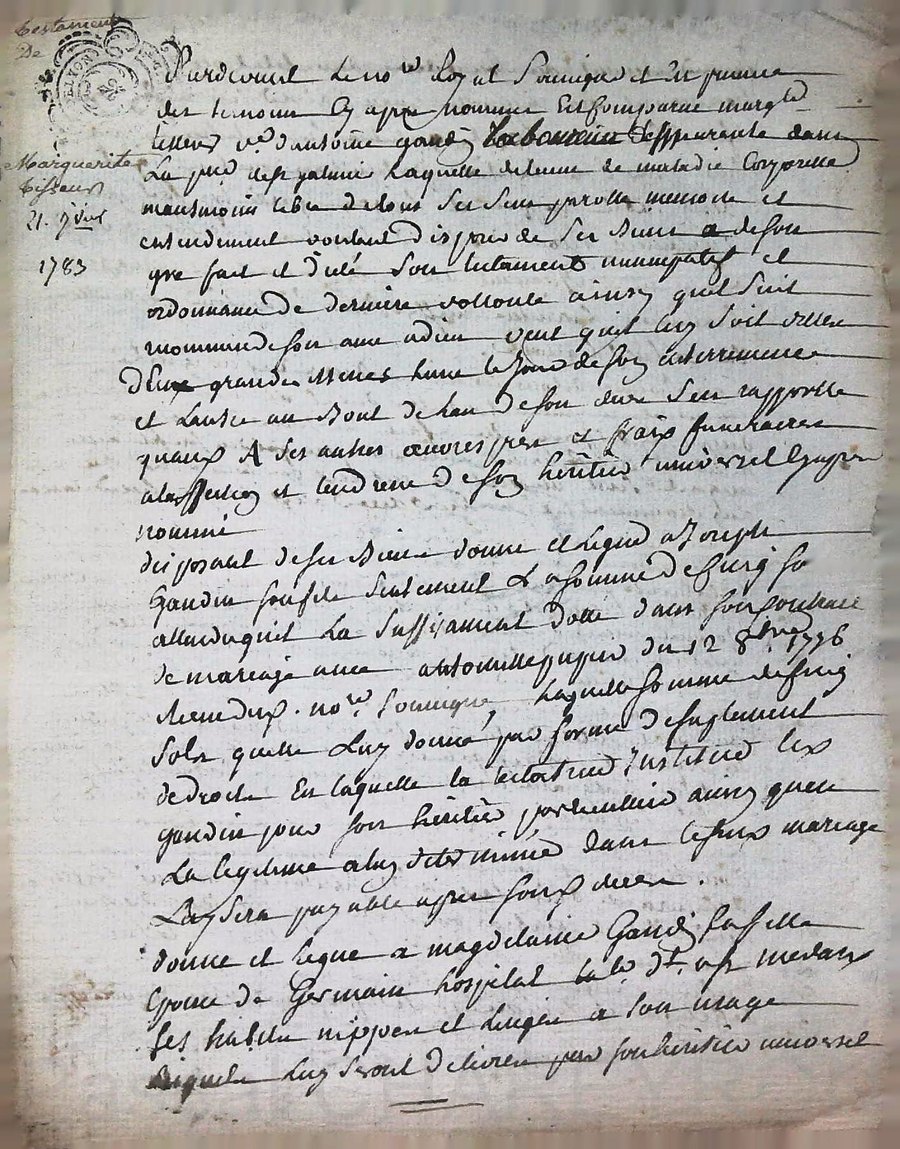 testament
De
LYON
Marguerite
tisseur
21. 9bre
1783
Pardevant le nore Royal Soussigné et En présence
des temoins Cy apres nommés Est Comparue margte
ve d'antoine gandin demeurante dans
La psse de laquelle detenue de maladie Corporelle
neantmoins libre de tous ses Sens parolle memoire et
entendement voulant disposer de Ses Biens a de son
gre fait et dicté Son testament nuncupatif et
ordonnance de derniere vollonté ainsy quil suit
recommande son ame a dieu veut quil luy soit
Deux grandes Messes lune le Jour de son enterrement
et Lautre au Bout de lan de son deces sen rapporte
quand A ses autres œuvres pies et fraix funeraires
a laffection et tendresse de son heritier universel Cy apres
nommé
disposant de ses Biens donne et legue a Joseph
Gandin son fils seulement La somme de Cinq so
attendu quil La suffisament doté dans son Contract
de mariage avec antoinette du 12 8bre 1776
Receu dux. nore Soussigné, Laquelle somme de Cinq
Sols quelle Luy donne par forme de suplement
de droits En laquelle la testatrice Institue led
gandin pour son héritier particulier ainsy quen
La legitime a luy determinée dans le sud mariage
Luy sera payable apres son deces.
donne et legue a magdelaine Gandin sa fille
Epouse de Germain hospital
ses habits nippes et linges a son usage
Lesquels Luy seront delivrés par son héritier universel